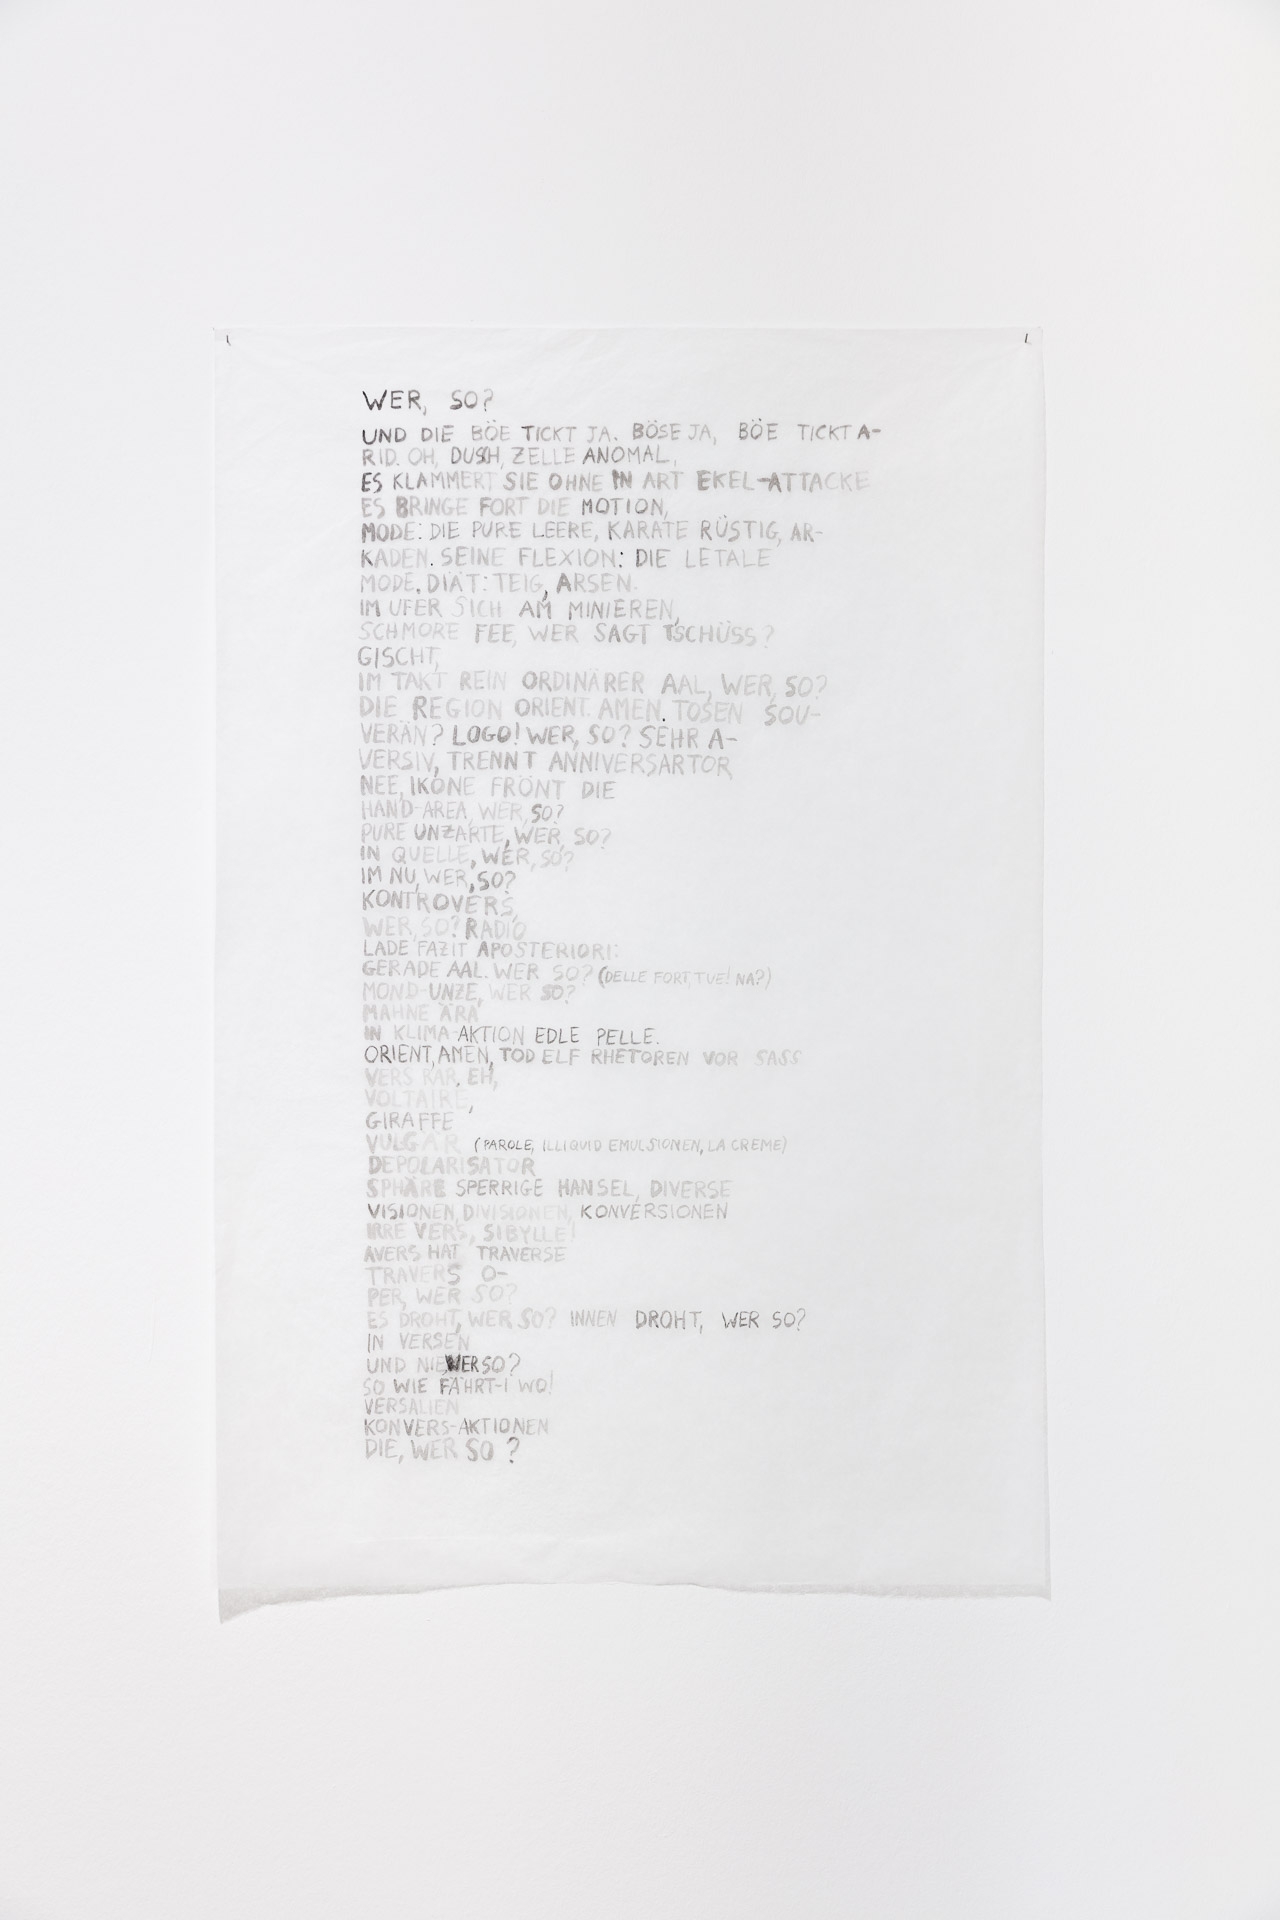 WER, SO?
UND DIE BÖE TICKT JA. BÖSE JA, BÖE TICKT A-
RID. OH, DUSCH, ZELLE ANOMAL,
ES KLAMMERT SIE OHNE IN ART EKEL-ATTACKE
ES BRINGE FORT DIE MOTION,
MODE: DIE PURE LEERE, KARATE RÜSTIG, AR-
KADEN. SEINE FLEXION: DIE LETALE
MODE. DIÄT: TEIG, ARSEN.
IM UFER SICH AM MINIEREN,
SCHMORE FEE, WER SAGT TSCHÜSS?
GISCHT,
IM TAKT REIN ORDINÄRER AAL, WER, SO?
DIE REGION ORIENT. AMEN. TOSEN SOU-
VERÄN? LOGO! WER, SO? SEHR A-
VERSIV, TRENNT ANNIVERSARTOR
NEE, IKONE FRÖNT DIE
HAND-AREA, WER, SO?
PURE UNZARTE, WER, SO?
IN QUELLE, WER, SO?
IM NU, WER, SO?
KONTROVERS,
WER, SO? RADIO
LADE FAZIT APOSTERIORI:
GERADE AAL. WER SO? (DELLE FORT, TUE! NA?)
MOND-UNZE, WER SO?
MAHNE ÄRA
IN KLIMA-AKTION EDLE PELLE.
ORIENT, AMEN, TOD ELF RHETOREN VOR SASS
VERS RAR, EH,
VOLTAIRE,
GIRAFFE
VULGÄR (PAROLE, ILLIQUID EMULSIONEN, LA CREME)
DEPOLARISATOR
SPHÄRE SPERRIGE HANSEL, DIVERSE
VISIONEN, DIVISIONEN, KONVERSIONEN
IRRE VERS, SIBYLLE!
AVERS HAT TRAVERSE
TRAVERS O-
PER, WER SO?
ES DROHT, WER SO? INNEN DROHT, WER SO?
IN VERSEN
UND NIE, WER SO?
SO WIE FÄHRT-I WO!
VERSALIEN
KONVERS-AKTIONEN
DIE, WER SO?